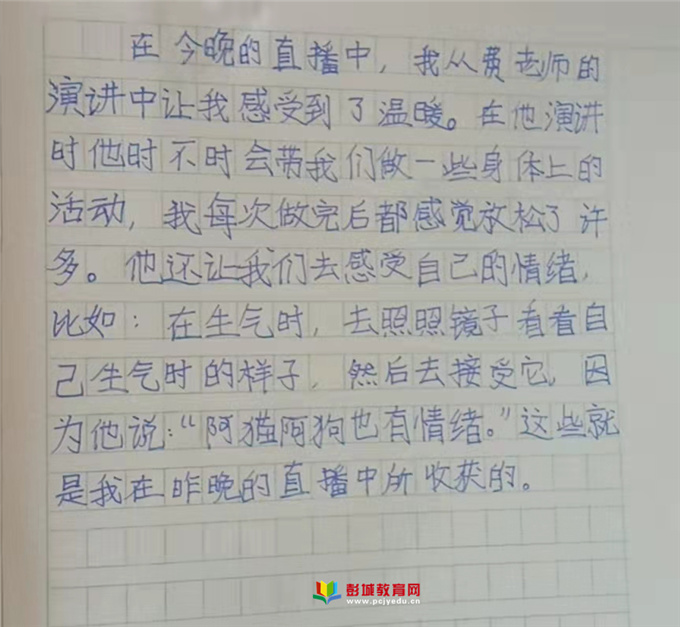 在今晚的直播中，我从费老师的
演讲中让我感受到了温暖。在他演讲
时他时不时会带我们做一些身体上的
活动，我每次做完后都感觉放松了许
多。他还让我们去感受自己的情绪，
比如：在生气时，去照照镜子看看自
己生气时的样子，然后去接受它，因
为他说：“阿猫阿狗也有情绪。”这些就
是我在昨晚的直播中所收获的。
彭城教育网
www.pcjyedu.cn